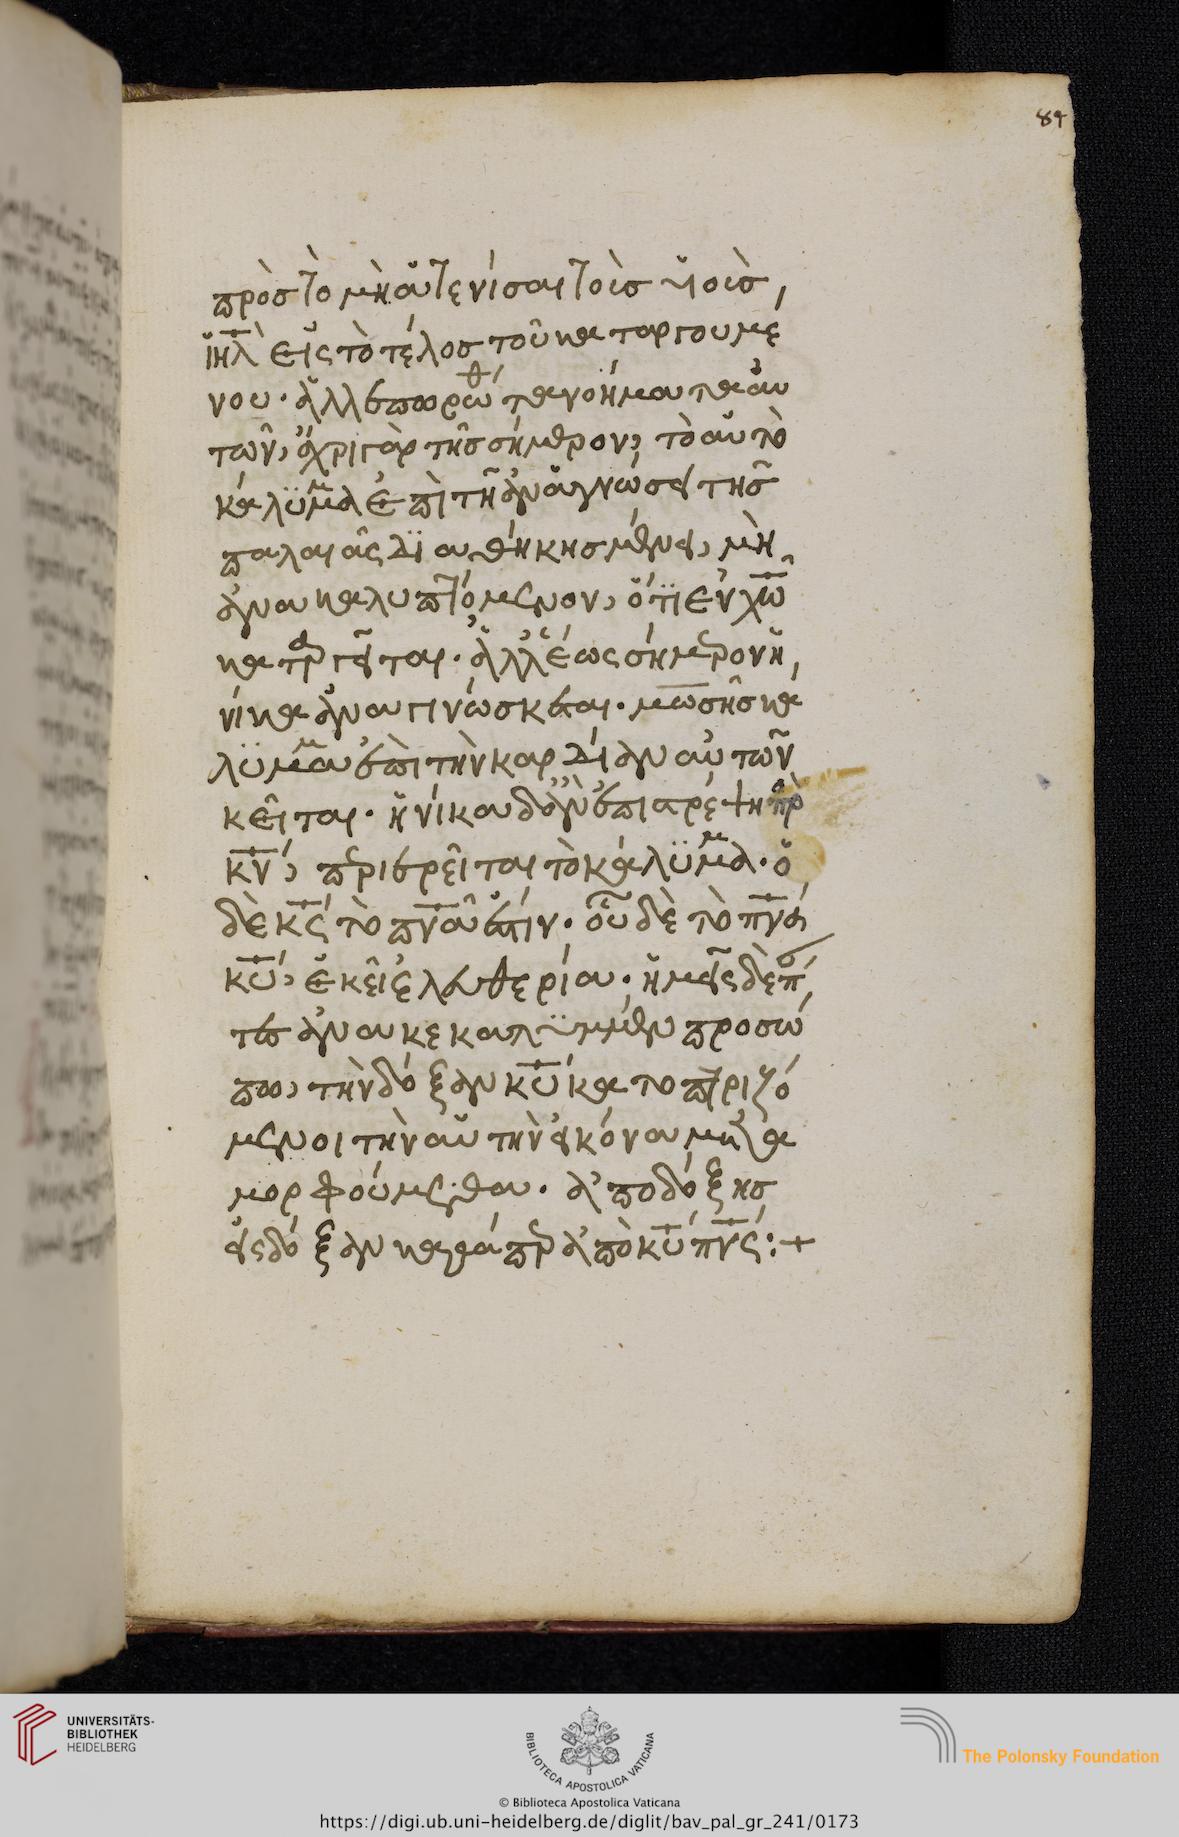 84
πρὸς τὸ μὴ ἀτενίσαι τοὺς υἱοὺς
ιηλ εἰς τὸ τέλος τοῦ καταργουμέ
νου· ἀλλ' ἐπωρώθη τὰ νοήματα αὐ
τῶν, ἄχρι γὰρ τῆς σήμερον, τὸ αὐτὸ
κάλυμμα ἐπὶ τῇ ἀναγνώσει τῆς
παλαιᾶς διαθήκης μένει, μὴ
ἀνακαλυπτόμενον, ὅτι ἐν χω
καταργεῖται· ἀλλ' ἕως σήμερον ἡ
νίκα ἀναγινώσκεται· μωσῆς κά
λυμμα ἐπὶ τὴν καρδίαν αὐτῶν
κεῖται· ἡνίκα δ' ἂν ἐπιστρέψη πρὸς
κν, περιαιρεῖται τὸ κάλυμμα· ὁ
δὲ κς τὸ πνα ἐστίν· οὗ δὲ τὸ πνα
κυ, ἐκεῖ ἐλευθερία· ἡμεῖς δὲ πάν
τες ἀνακεκαλυμμένω προσώ
πω, τὴν δόξαν κυ κατοπτριζό
μενοι τὴν αὐτὴν εἰκόνα μετα
μορφούμεθα· ἀπὸ δόξης
εἰς δόξαν καθάπερ ἀπὸ κυ πνς:+
UNIVERSITÄTS-
BIBLIOTHEK
HEIDELBERG
BIBLIOTECA APOSTOLICA VATICANA
The Polonsky Foundation
© Biblioteca Apostolica Vaticana
https://digi.ub.uni-heidelberg.de/diglit/bav_pal_gr_241/0173